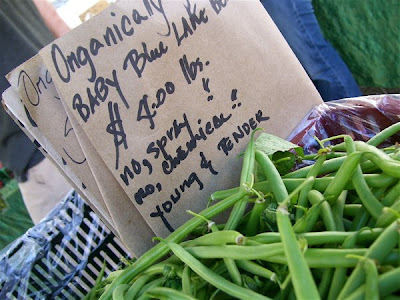 Organically
BABY Blue LAKE
$ 4.00 lbs.
no, spray "
no, chemical "
young & TENDER